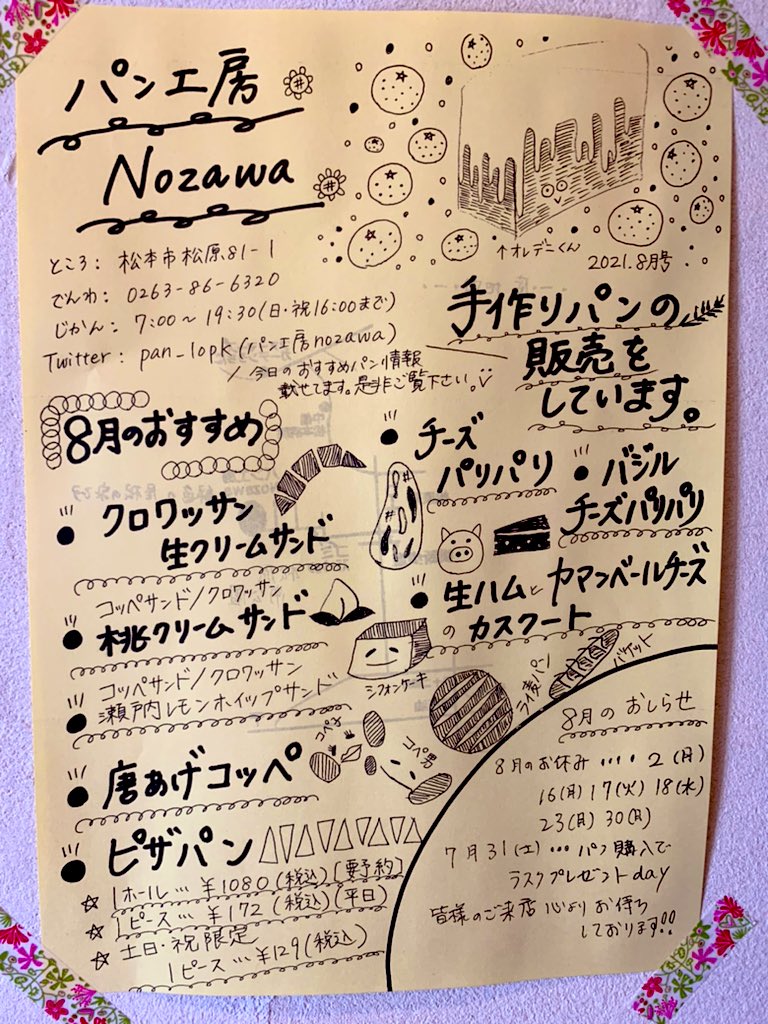 パン工房
Nozawa
↑オレデニくん
2021.8月号
ところ: 松本市松原81-1
でんわ: 0263-86-6320
じかん: 7:00～19:30(日・祝16:00まで)
Twitter: pan_lopk(パン工房nozawa)
今日のおすすめパン情報
載せてます。是非ご覧下さい。
手作りパンの
販売を
しています。
8月のおすすめ
● クロワッサン
生クリームサンド
コッペサンド/クロワッサン
● 桃クリームサンド
コッペサンド/クロワッサン
● 瀬戸内レモンホイップサンド
● 唐あげコッペ
● ピザパン
☆ 1ホール…¥1080(税込)[要予約]
☆ 1ピース…¥172(税込)(平日)
☆ 土日・祝限定
1ピース…¥129(税込)
● チーズ
パリパリ
● バジル
チーズパリパリ
● 生ハムとカマンベールチーズ
のカスクート
シフォンケーキ
ライ麦パン
バゲット
コペ男
8月のおしらせ
8月のお休み….. 2(月)
16(月)17(火)18(水)
23(月)30(月)
7月31(土)…パン購入で
ラスクプレゼントday
皆様のご来店心よりお待ち
しております!!